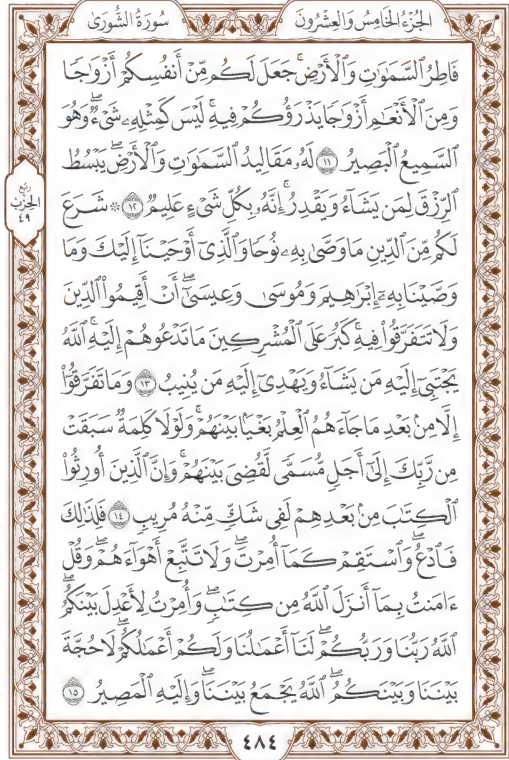 سُورَةُ الشُّورَىٰ
الجُزْءُ الخَامِسُ وَالعِشْرُونَ
فَاطِرُ ٱلسَّمَٰوَٰتِ وَٱلْأَرْضِۚ جَعَلَ لَكُم مِّنْ أَنفُسِكُمْ أَزْوَٰجًا
وَمِنَ ٱلْأَنْعَٰمِ أَزْوَٰجًا يَذْرَؤُكُمْ فِيهِۚ لَيْسَ كَمِثْلِهِۦ شَىْءٌۖ وَهُوَ
ٱلسَّمِيعُ ٱلْبَصِيرُ ١١ لَهُۥ مَقَالِيدُ ٱلسَّمَٰوَٰتِ وَٱلْأَرْضِۖ يَبْسُطُ
ٱلرِّزْقَ لِمَن يَشَآءُ وَيَقْدِرُۚ إِنَّهُۥ بِكُلِّ شَىْءٍ عَلِيمٌ ١٢ ۞ شَرَعَ
لَكُم مِّنَ ٱلدِّينِ مَا وَصَّىٰ بِهِۦ نُوحًا وَٱلَّذِىٓ أَوْحَيْنَآ إِلَيْكَ وَمَا
وَصَّيْنَا بِهِۦٓ إِبْرَٰهِيمَ وَمُوسَىٰ وَعِيسَىٰٓۖ أَنْ أَقِيمُوا۟ ٱلدِّينَ
وَلَا تَتَفَرَّقُوا۟ فِيهِۚ كَبُرَ عَلَى ٱلْمُشْرِكِينَ مَا تَدْعُوهُمْ إِلَيْهِۚ ٱللَّهُ
يَجْتَبِىٓ إِلَيْهِ مَن يَشَآءُ وَيَهْدِىٓ إِلَيْهِ مَن يُنِيبُ ١٣ وَمَا تَفَرَّقُوٓا۟
إِلَّا مِنۢ بَعْدِ مَا جَآءَهُمُ ٱلْعِلْمُ بَغْيًۢا بَيْنَهُمْۚ وَلَوْلَا كَلِمَةٌ سَبَقَتْ
مِن رَّبِّكَ إِلَىٰٓ أَجَلٍ مُّسَمًّى لَّقُضِىَ بَيْنَهُمْۚ وَإِنَّ ٱلَّذِينَ أُورِثُوا۟
ٱلْكِتَٰبَ مِنۢ بَعْدِهِمْ لَفِى شَكٍّ مِّنْهُ مُرِيبٍ ١٤ فَلِذَٰلِكَ
فَٱدْعُۖ وَٱسْتَقِمْ كَمَآ أُمِرْتَۖ وَلَا تَتَّبِعْ أَهْوَآءَهُمْۖ وَقُلْ
ءَامَنتُ بِمَآ أَنزَلَ ٱللَّهُ مِن كِتَٰبٍۖ وَأُمِرْتُ لِأَعْدِلَ بَيْنَكُمُۖ
ٱللَّهُ رَبُّنَا وَرَبُّكُمْۖ لَنَآ أَعْمَٰلُنَا وَلَكُمْ أَعْمَٰلُكُمْۖ لَا حُجَّةَ
بَيْنَنَا وَبَيْنَكُمُۖ ٱللَّهُ يَجْمَعُ بَيْنَنَاۖ وَإِلَيْهِ ٱلْمَصِيرُ ١٥
ربع
الحزب
٤٩
٤٨٤